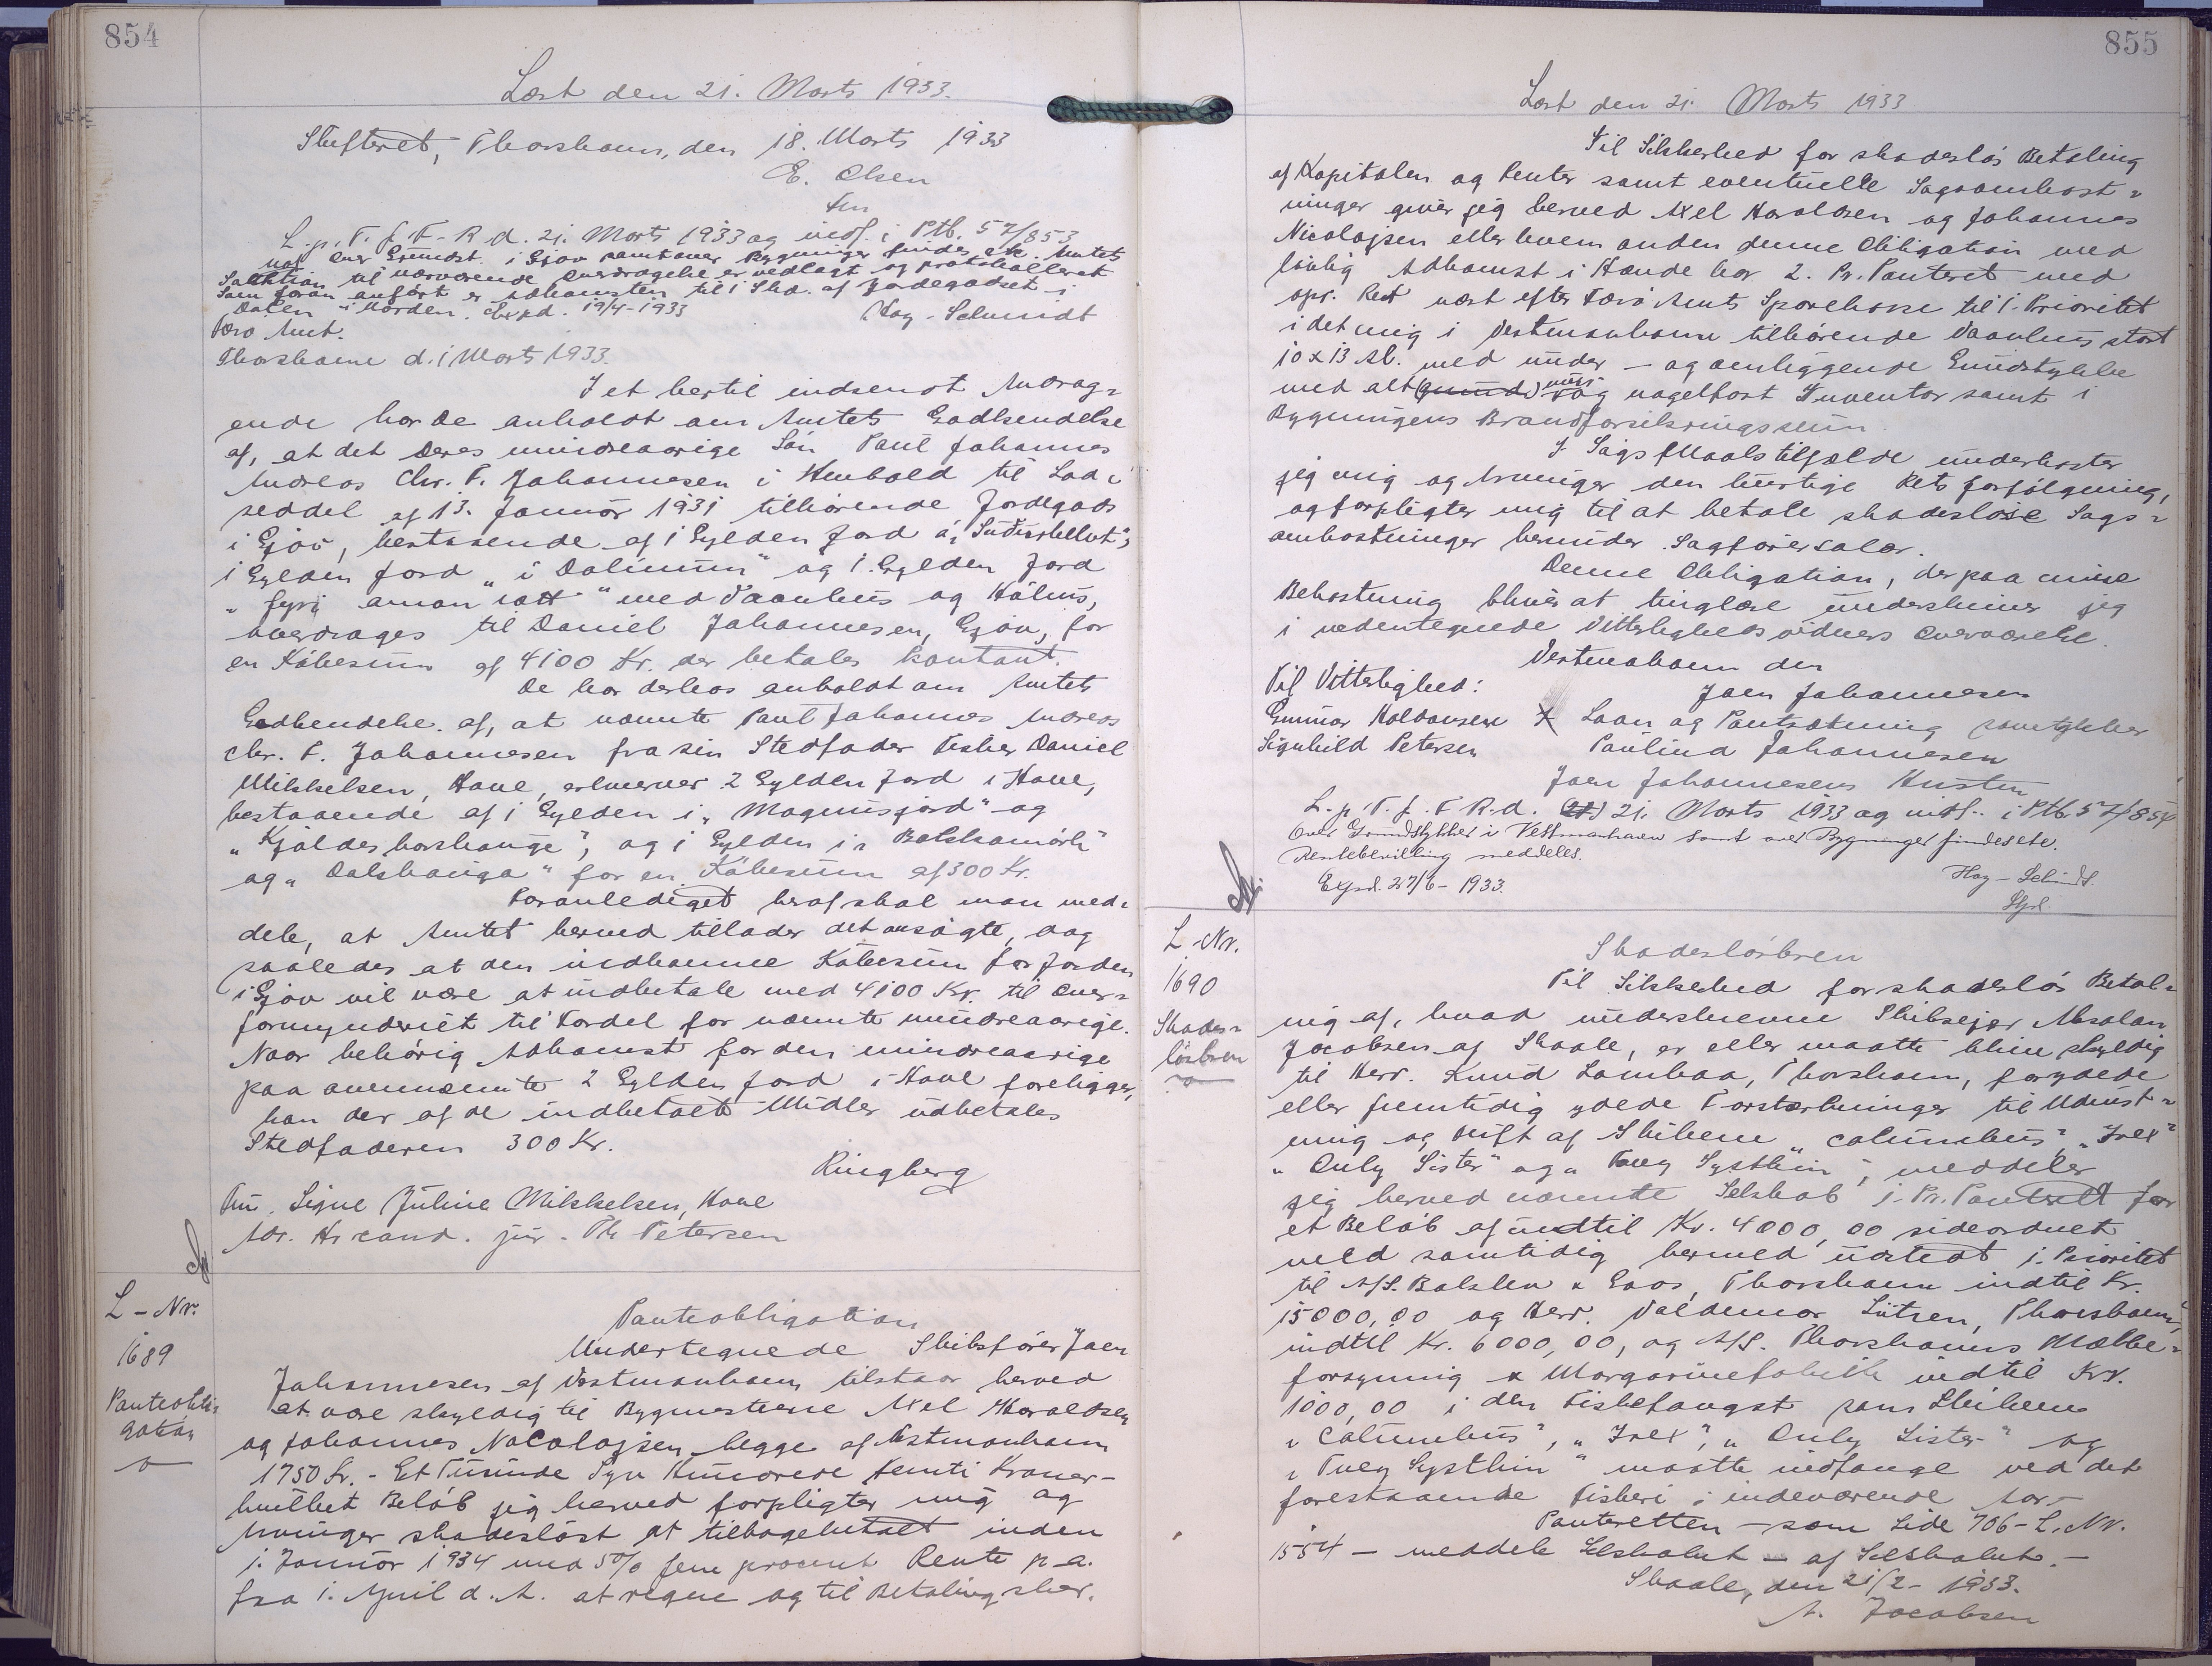 854
Læst den 21. Marts 1933.
Skifteret, Thorshavn, den 18. Marts 1933
E. Olsen
fm
L.p.T.f.F-R.d. 21. Marts 1933 og indf. i Ptb. 57/853
over Grundst. i Gjov samt over Bygninger findes etc. Amtets
Sanktion til nærværende Overdragelse er vedlagt og protokolleret
som foran anført er Adkomsten til 1 Skd. af Jordegodset i
Dalen i Orden. Expd. 19/4-1933
Hoy-Schmidt
Færø Amt.
Thorshavn d. 1 Marts 1933.
I et hertil indsendt Andrag-
ende har De anholdt om Amtets Godkendelse
af, at det Deres mindreaarige Søn Paul Johannes
Andreas Chr. F. Johannesen i Henhold til Lod-
seddel af 13. Januar 1931 tilhørende Jordegods
i Gjov, bestaaende af 1 Gylden Jord á
1 Gylden Jord „i Dalinum" og 1 Gylden Jord
„fyri annan " med Vaanhus og Hálvus,
overdrages til Daniel Johannesen, Gjov, for
en Købesum af 4100 Kr. der betales kontant.
De har derhos anholdt om Amtets
Godkendelse af, at nævnte Paul Johannes Andreas
Chr. F. Johannesen fra sin Stedfader Fisker Daniel
Mikkelsen, Hove, erhverver 2 Gylden Jord i Hove,
bestaaende af 1 Gylden i „Magnusjord" og
og 1 Gylden i
og „Dalshaúga" for en Købesum af 300 Kr.
Foranlediget heraf skal man med-
dele, at Amtet herved tillader det ansøgte, dog
saaledes at den indkomne Købesum for Jorden
i Gjov vil være at indbetale med 4100 Kr. til Over-
formynderiet til Fordel for nævnte mindreaarige.
Naar behørig Adkomst for den mindreaarige
paa ovennævnte 2 Gylden Jord i Hove foreligger,
kan der af de indbetalte Midler udbetales
Stedfaderen 300 Kr.
Ringberg
Fru. Signe Júline Mikkelsen, Hove
Adr. Hr cand. jur. Th Petersen
L-Nr.
1689
Panteobli-
gation
Panteobligation
Undertegnede Skibsfører Joen
Johannesen af Vestmanhavn tilstaar herved
at være skyldig til Bygmestrene Axel Haraldsen
og Johannes Nicolajsen begge af Vestmanhavn
1750 Kr. - Et Tusinde Syv Hundrede Femti Kroner-
hvilket Beløb jeg herved forpligter mig og
Arvinger skadesløst at tilbagebetalt inden
1. Januar 1934 med 5% fem procent Rente p.a.
fra 1. April d. A. at regne og til Betaling sker.
855
Læst den 21. Marts 1933
Til Sikkerhed for skadesløs Betaling
af Kapitalen og Renter samt eventuelle Sagsomkost-
ninger giver jeg herved Axel Haraldsen og Johannes
Nicolajsen eller hvem anden denne Obligation med
lovlig Adkomst i Hænde har 2. Pr. Panteret med
opr. Ret næst efter Færø Amts Sparekasse til 1. Prioritet
i det mig i Vestmanhavn tilhørende Vaanhus stort
10 x 13 Al. med under- og omliggende Grundstykke
med alt (grund) mur- og nagelfast Inventar samt i
Bygningens Brandforsikringssum.
I Sags Maals tilfælde underkaster
jeg mig og Arvinger den hurtige Rets forfølgning,
og forpligter mig til at betale skadesløse Sags-
omkostninger herunder Sagførersalær.
Denne Obligation, der paa mine
Bekostning bliver at tinglæse underskriver jeg
i vedentegnede Vitterlighedsvidners Overværelse.
Vestmahavn den
Til Vitterlighed:
Joen Johannesen
Gunnar Holdansen X Laan og Pantsætning samtykker
Signhild Petersen Paulina Johannesen
Joen Johannesens Hustru
L.p.T.f.F.R.d. (21) 21. Marts 1933 og indf. i Ptb. 57/854
Over Grundstykket i Vestmanhavn samt over Bygninger findes etc.
Rentebevilling meddeles.
Expd. 27/6-1933.
Hoy-Schmidt.
L-Nr.
1690
Skades-
løsbrev
Skadesløsbrev
Til Sikkerhed for skadesløs Betal-
ing af, hvad underskrevne Skibsejer Absalon
Jacobsen af Skaale, er eller maatte blive skyldig
til Herr. Knud Lambaa, Thorshavn, for ydede
eller fremtidig ydede Forstærkninger til Udrust-
ning og Drift af Skibene „Columbus", „Irex"
„Only Sister" og „Tvey Systkin", meddeler
jeg herved nævnte Selskab 1. Pr. Panteret for
et Beløb af indtil Kr. 4000,00 sideordnet
med samtidig hermed udstedt 1. Prioritet
til A/S. Balslev & Gaos, Thorshavn indtil Kr.
15000,00 og Herr. Valdemar Lützen, Thorshavn,
indtil Kr. 6000,00, og A/S. Thorshavns Mælke-
forsyning & Margarinefabrik indtil Kr.
1000,00 i den Fiskefangst som Skibene
„Columbus", „Irex", „Only Sister" og
„Tvey Systkin" maatte indfange ved det
forestaaende Fiskeri i indeværende Aar.-
Panteretten - som Side 706-L.Nr.
1554 - meddelt Selskabet - af Selskabet.-
Skaale, den 21/2-1933.
A. Jacobsen